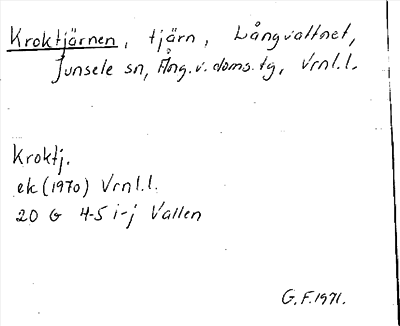 Kroktjärnen, tjärn, Långvattnet,
Junsele sn, Ång. v. doms. tg, Vrnl.l.
Kroktj.
ek (1970) Vrnl.l.
20 G 4-5 i-j Vallen
G.F. 1971.